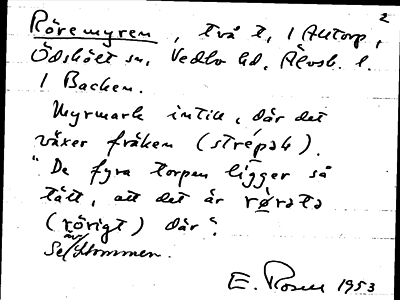 2
Röremyren, två t, 1 Attorp,
Ödskölt sn, Vedbo hd, Älvsb. l.
1 Backen.
Myrmark intill, där det
växer fräken (strépah).
"De fyra torpen ligger så
tätt, att det är rørata
(rörigt) där".
E. Rosell 1953